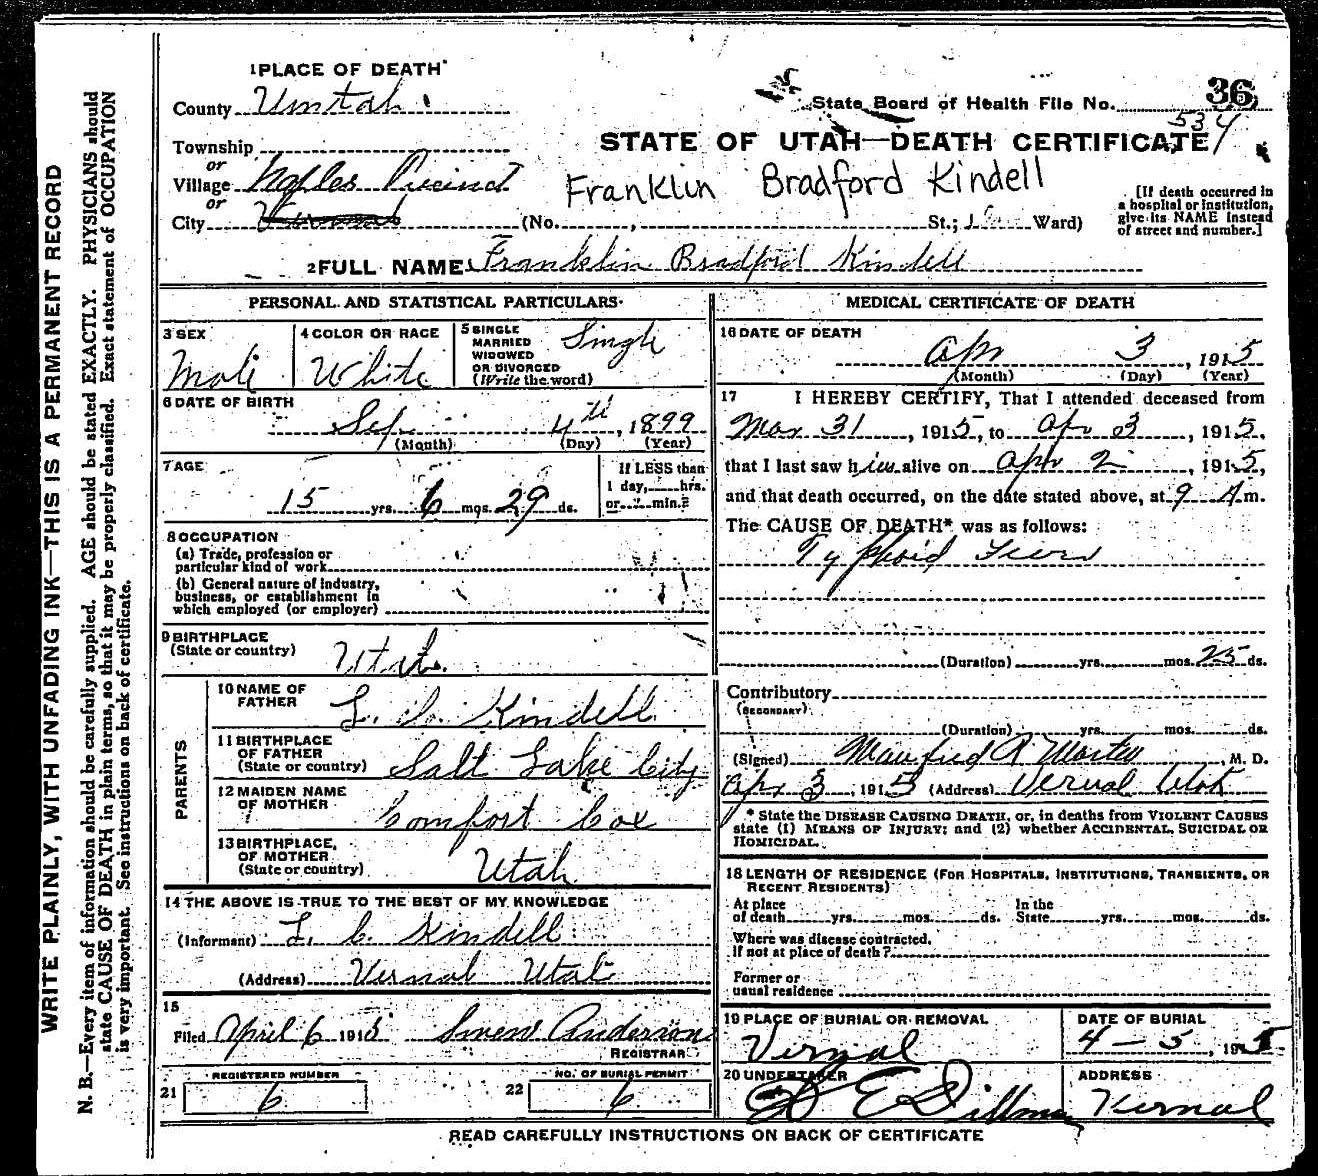 1 PLACE OF DEATH
County Uintah
State Board of Health File No. 36
534
Township
or
Village Naples Precinct
or
City Vernal
STATE OF UTAH—DEATH CERTIFICATE
Franklin Bradford Kindell
(No. , St.; Ward)
[If death occurred in
a hospital or institution,
give its NAME instead
of street and number.]
2 FULL NAME Franklin Bradford Kindell
PERSONAL AND STATISTICAL PARTICULARS
3 SEX
Male
4 COLOR OR RACE
White
5 SINGLE
MARRIED
WIDOWED
OR DIVORCED
(Write the word)
Single
6 DATE OF BIRTH
Sep. 4th, 1899
(Month) (Day) (Year)
7 AGE
15 yrs. 6 mos. 29 ds.
If LESS than
1 day, hrs.
or min.?
8 OCCUPATION
(a) Trade, profession or
particular kind of work
(b) General nature of industry,
business, or establishment in
which employed (or employer)
9 BIRTHPLACE
(State or country)
Utah.
PARENTS
10 NAME OF
FATHER
Kindell
11 BIRTHPLACE
OF FATHER
(State or country)
Salt Lake City
12 MAIDEN NAME
OF MOTHER
Comfort Cox
13 BIRTHPLACE,
OF MOTHER
(State or country)
Utah
14 THE ABOVE IS TRUE TO THE BEST OF MY KNOWLEDGE
(Informant) L. C. Kindell
(Address) Vernal Utah
15
Filed April 6 1915 Anderson
REGISTRAR
21
REGISTERED NUMBER
6
22
NO. OF BURIAL PERMIT
6
MEDICAL CERTIFICATE OF DEATH
16 DATE OF DEATH
Apr 3, 1915
(Month) (Day) (Year)
17 I HEREBY CERTIFY, That I attended deceased from
Mar 31, 1915, to Apr 3, 1915,
that I last saw him alive on Apr 2, 1915,
and that death occurred, on the date stated above, at 9 A m.
The CAUSE OF DEATH* was as follows:
Typhoid Fever
(Duration) yrs. mos. 25 ds.
Contributory
(SECONDARY)
(Duration) yrs. mos. ds.
(Signed) Manfred R Martin, M. D.
Apr 3, 1915 (Address) Vernal Utah
* State the DISEASE CAUSING DEATH, or, in deaths from VIOLENT CAUSES
state (1) MEANS OF INJURY; and (2) whether ACCIDENTAL, SUICIDAL OR
HOMICIDAL.
18 LENGTH OF RESIDENCE (FOR HOSPITALS, INSTITUTIONS, TRANSIENTS, OR
RECENT RESIDENTS)
At place
of death yrs. mos. ds.
In the
State yrs. mos. ds.
Where was disease contracted,
if not at place of death?
Former or
usual residence
19 PLACE OF BURIAL OR REMOVAL
Vernal
DATE OF BURIAL
4 - 5, 1915
20 UNDERTAKER
Dillman
ADDRESS
Vernal
READ CAREFULLY INSTRUCTIONS ON BACK OF CERTIFICATE
WRITE PLAINLY, WITH UNFADING INK—THIS IS A PERMANENT RECORD
N. B.—Every item of information should be carefully supplied. AGE should be stated EXACTLY. PHYSICIANS should
state CAUSE OF DEATH in plain terms, so that it may be properly classified. Exact statement of OCCUPATION
is very important. See instructions on back of certificate.